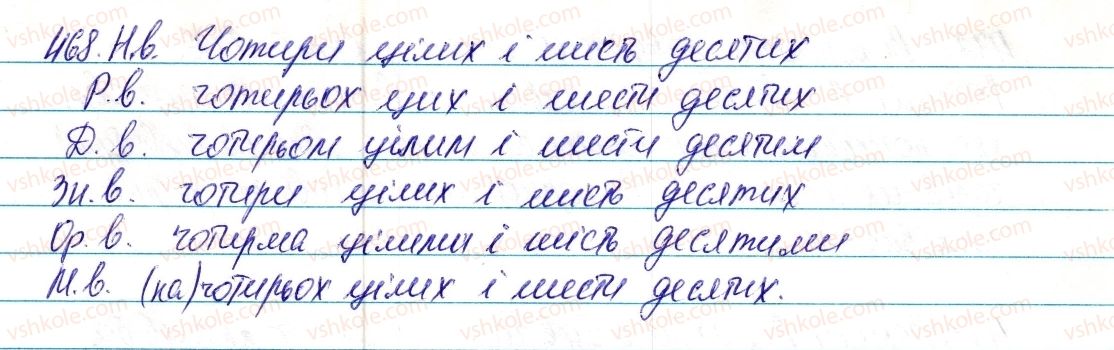 468. Н.в. Чотири цілих і шість десятих
Р.в. чотирьох цих і шести десятих
Д.в. чотирьом цілим і шести десятим
Зн.в. чотири цілих і шість десятих
Ор.в. чотирма цілими і шість десятими
М.в. (на) чотирьох цілих і шести десятих.